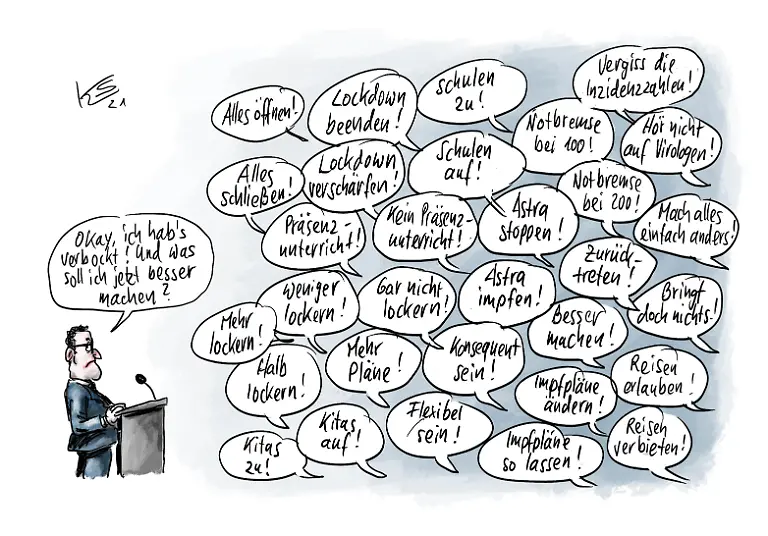 KS
21
Okay, ich hab's
verbockt! Und was
soll ich jetzt besser
machen?
Alles öffnen!
Lockdown
beenden!
Schulen
zu!
Vergiss die
Inzidenzzahlen!
Notbremse
bei 100!
Hör nicht
auf Virologen!
Alles
schließen!
Lockdown
verschärfen!
Schulen
auf!
Notbremse
bei 200!
Präsenz-
unterricht!
Kein Präsenz-
unterricht!
Astra
stoppen!
Mach alles
einfach anders!
Zurück-
treten!
Weniger
lockern!
Gar nicht
lockern!
Astra
impfen!
Bringt
doch nichts!
Mehr
lockern!
Besser
machen!
Halb
lockern!
Mehr
Pläne!
Konsequent
sein!
Impfpläne
ändern!
Reisen
erlauben!
Kitas
zu!
Kitas
auf!
Flexibel
sein!
Impfpläne
so lassen!
Reisen
verbieten!